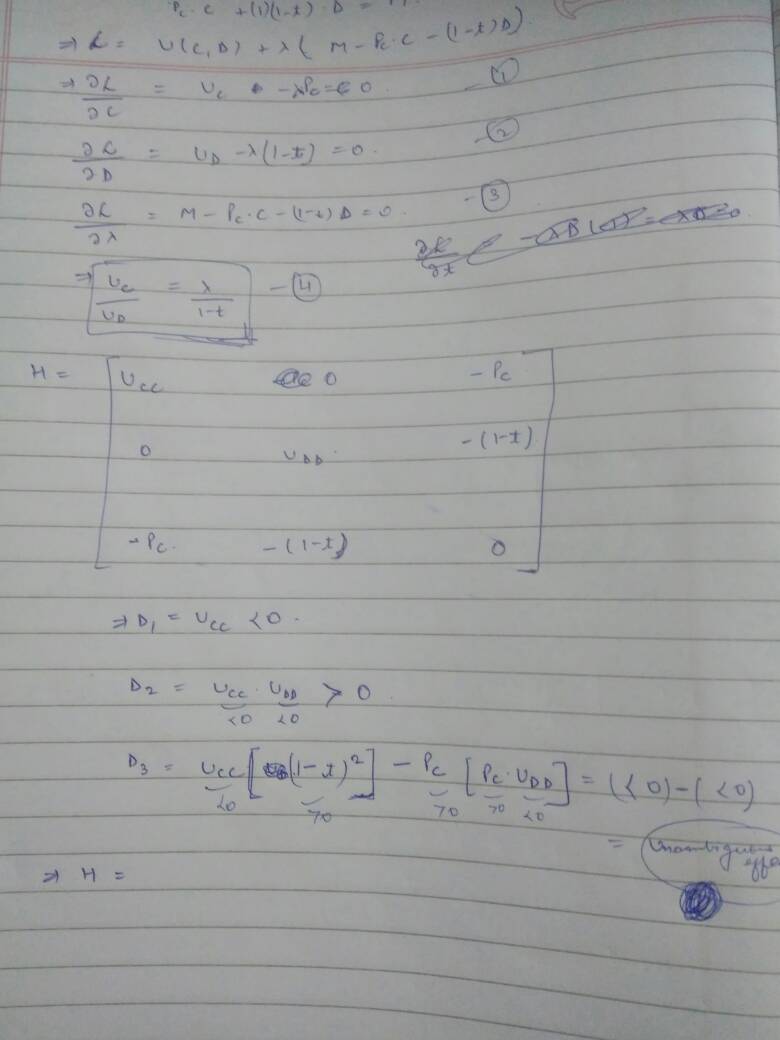 Pc·C + (1)(1-t)·D =
⇒ L = U(C,D) + λ( M - Pc·C - (1-t)D).
⇒ ∂L/∂C = Uc - λPc = 0. - ①
∂L/∂D = UD - λ(1-t) = 0. - ②
∂L/∂λ = M - Pc·C - (1-t)D = 0. - ③
∂L/∂t
⇒ Uc/UD = λ/1-t - ④
H = [ Ucc 0 -Pc
0 UDD -(1-t)
-Pc. -(1-t) 0 ]
⇒ D1 = Ucc <0.
D2 = Ucc · UDD > 0.
<0 <0
D3 = Ucc [(1-t)²] - Pc [Pc·UDD] = (<0) - (<0)
<0 >0 >0 >0 <0
= Unambiguous
⇒ H =